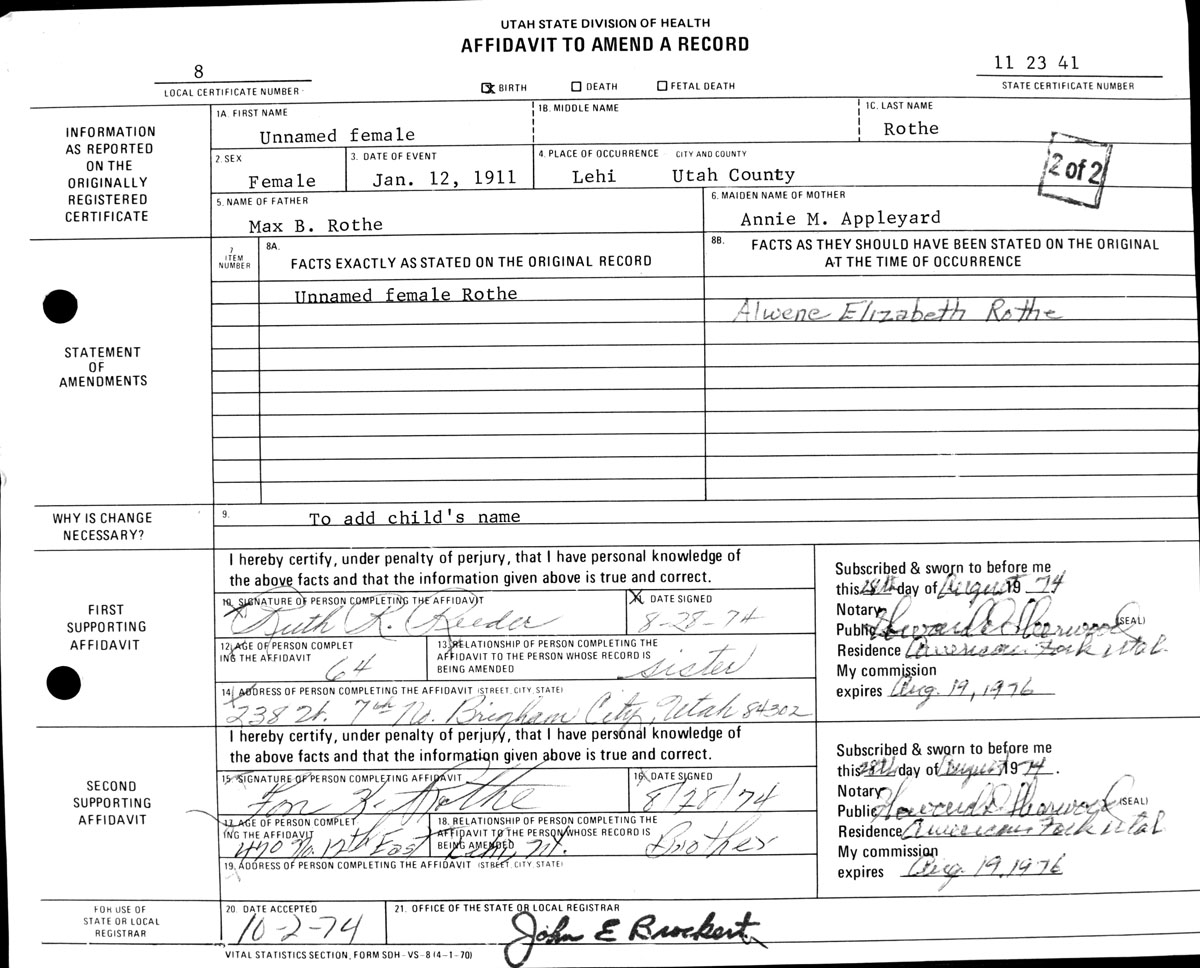 UTAH STATE DIVISION OF HEALTH
AFFIDAVIT TO AMEND A RECORD
8
LOCAL CERTIFICATE NUMBER
☒ BIRTH ☐ DEATH ☐ FETAL DEATH
11 23 41
STATE CERTIFICATE NUMBER
INFORMATION
AS REPORTED
ON THE
ORIGINALLY
REGISTERED
CERTIFICATE
1A. FIRST NAME
Unnamed female
1B. MIDDLE NAME
1C. LAST NAME
Rothe
2. SEX
Female
3. DATE OF EVENT
Jan. 12, 1911
4. PLACE OF OCCURRENCE CITY AND COUNTY
Lehi Utah County
2 of 2
5. NAME OF FATHER
Max B. Rothe
6. MAIDEN NAME OF MOTHER
Annie M. Appleyard
STATEMENT
OF
AMENDMENTS
7
ITEM
NUMBER
8A.
FACTS EXACTLY AS STATED ON THE ORIGINAL RECORD
8B. FACTS AS THEY SHOULD HAVE BEEN STATED ON THE ORIGINAL
AT THE TIME OF OCCURRENCE
Unnamed female Rothe
Alwene Elizabeth Rothe
WHY IS CHANGE
NECESSARY?
9. To add child's name
FIRST
SUPPORTING
AFFIDAVIT
I hereby certify, under penalty of perjury, that I have personal knowledge of
the above facts and that the information given above is true and correct.
10. SIGNATURE OF PERSON COMPLETING THE AFFIDAVIT
Ruth R. Reeder
DATE SIGNED
8-28-74
12. AGE OF PERSON COMPLET
ING THE AFFIDAVIT
64
13. RELATIONSHIP OF PERSON COMPLETING THE
AFFIDAVIT TO THE PERSON WHOSE RECORD IS
BEING AMENDED
sister
14. ADDRESS OF PERSON COMPLETING THE AFFIDAVIT (STREET, CITY, STATE)
238 W. 7th No. Brigham City, Utah 84302
Subscribed & sworn to before me
this 28th day of August 1974
Notary
Public Howard Sherwood (SEAL)
Residence American Fork Utah
My commission
expires Aug. 19, 1976
SECOND
SUPPORTING
AFFIDAVIT
I hereby certify, under penalty of perjury, that I have personal knowledge of
the above facts and that the information given above is true and correct.
15. SIGNATURE OF PERSON COMPLETING AFFIDAVIT
Rothe
16. DATE SIGNED
8/28/74
17. AGE OF PERSON COMPLET
ING THE AFFIDAVIT
18. RELATIONSHIP OF PERSON COMPLETING THE
AFFIDAVIT TO THE PERSON WHOSE RECORD IS
BEING AMENDED
Brother
470 No. 12th East Lehi, Ut.
19. ADDRESS OF PERSON COMPLETING THE AFFIDAVIT (STREET, CITY, STATE)
Subscribed & sworn to before me
this 28th day of August 1974.
Notary
Public Howard Sherwood (SEAL)
Residence American Fork Utah
My commission
expires Aug. 19, 1976
FOR USE OF
STATE OR LOCAL
REGISTRAR
20. DATE ACCEPTED
10-2-74
21. OFFICE OF THE STATE OR LOCAL REGISTRAR
John E Brockert
VITAL STATISTICS SECTION, FORM SDH-VS-8 (4-1-70)